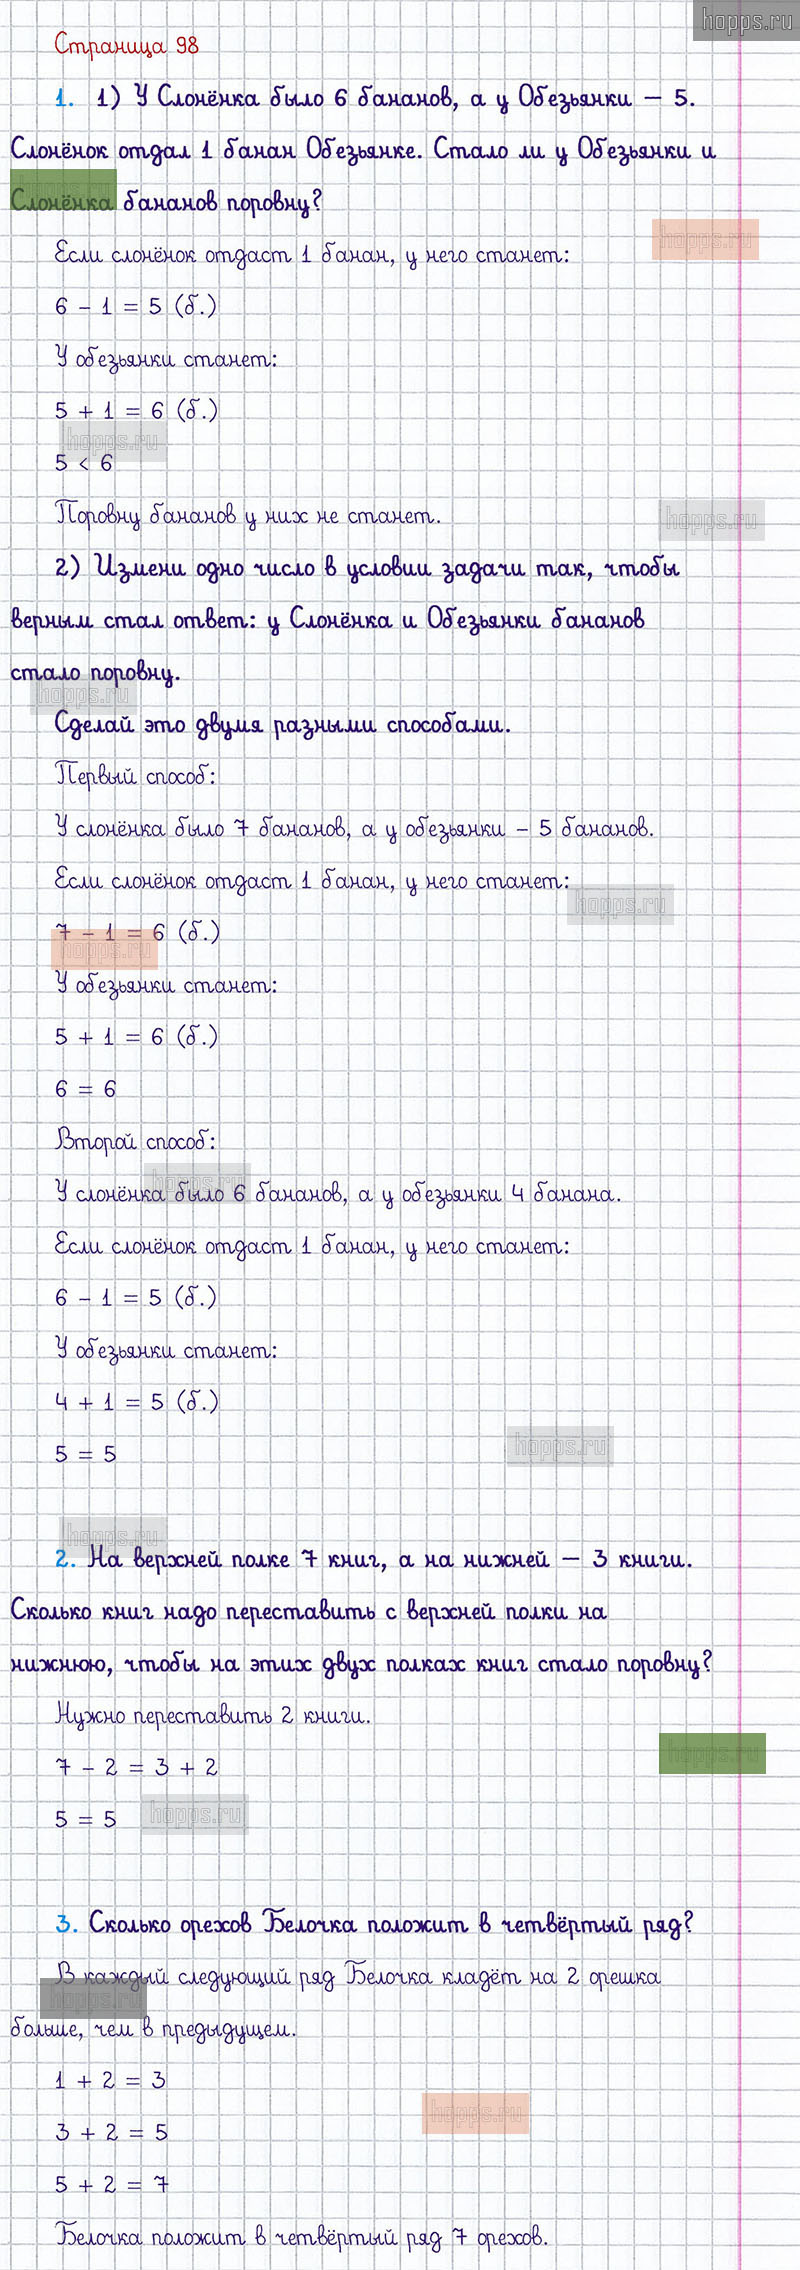 hopps.ru
Страница 98
1. 1) У Слонёнка было 6 бананов, а у Обезьянки – 5.
Слонёнок отдал 1 банан Обезьянке. Стало ли у Обезьянки и
hopps.ru
Слонёнка бананов поровну?
hopps.ru
Если слонёнок отдаст 1 банан, у него станет:
6 – 1 = 5 (б.)
У обезьянки станет:
5 + 1 = 6 (б.)
hopps.ru
5 < 6
Поровну бананов у них не станет.
hopps.ru
2) Измени одно число в условии задачи так, чтобы
верным стал ответ: у Слонёнка и Обезьянки бананов
стало поровну.
hopps.ru
Сделай это двумя разными способами.
Первый способ:
У слонёнка было 7 бананов, а у обезьянки – 5 бананов.
Если слонёнок отдаст 1 банан, у него станет:
hopps.ru
7 – 1 = 6 (б.)
hopps.ru
У обезьянки станет:
5 + 1 = 6 (б.)
6 = 6
Второй способ:
hopps.ru
У слонёнка было 6 бананов, а у обезьянки 4 банана.
Если слонёнок отдаст 1 банан, у него станет:
6 – 1 = 5 (б.)
У обезьянки станет:
4 + 1 = 5 (б.)
hopps.ru
5 = 5
hopps.ru
2. На верхней полке 7 книг, а на нижней – 3 книги.
Сколько книг надо переставить с верхней полки на
нижнюю, чтобы на этих двух полках книг стало поровну?
Нужно переставить 2 книги.
hopps.ru
7 – 2 = 3 + 2
5 = 5
hopps.ru
3. Сколько орехов Белочка положит в четвёртый ряд?
В каждый следующий ряд Белочка кладёт на 2 орешка
hopps.ru
больше, чем в предыдущем.
1 + 2 = 3
hopps.ru
3 + 2 = 5
5 + 2 = 7
Белочка положит в четвёртый ряд 7 орехов.